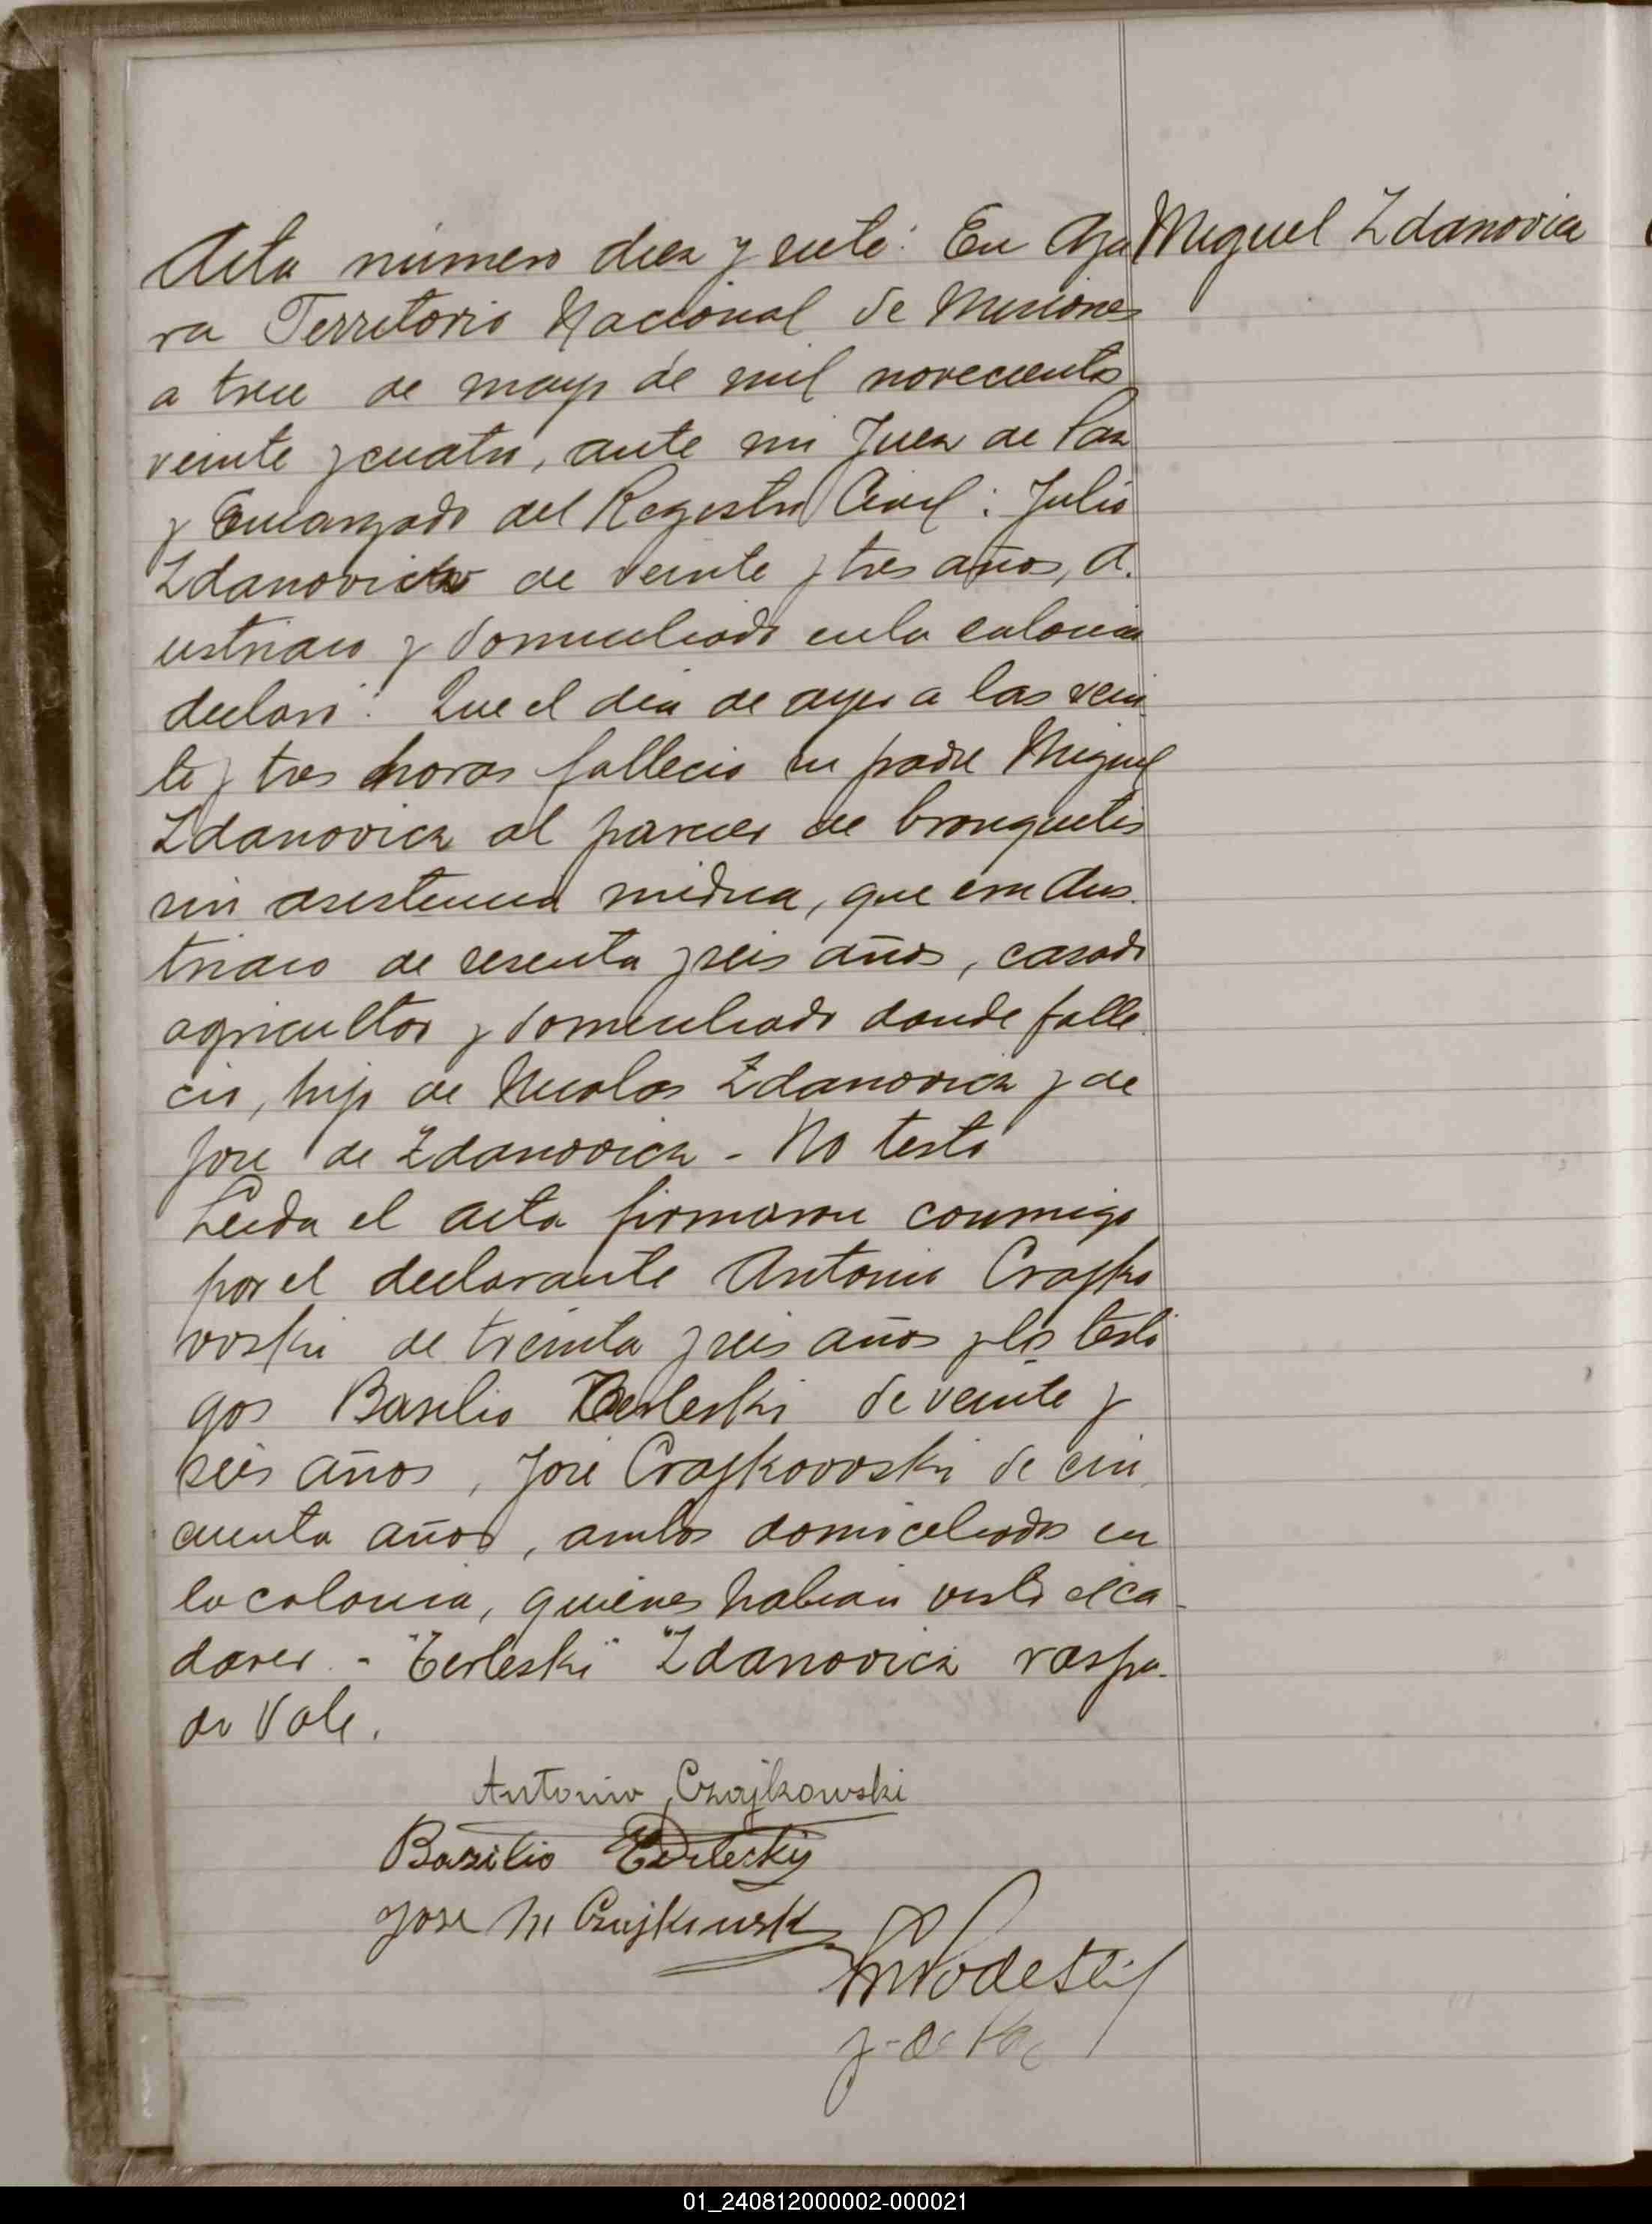 Acta número diez y siete: En Aza
Miguel Zdanovicz
ra Territorio Nacional de Misiones
a trece de mayo de mil novecientos
veinte y cuatro, ante mi Juez de Paz
y Encargado del Registro Civil: Julio
Zdanovicz de veinte y tres años, A.
ustriaco y domiciliado en la colonia
declaró: Que el dia de ayer a las vein
te y tres horas fallecio su padre Miguel
Zdanovicz al parecer de bronquitis
sin asistencia médica, que era Aus.
triaco de sesenta y seis años, casado
agricultor y domiciliado donde falle
cio, hijo de Nicolas Zdanovicz y de
de Zdanovicz - No testó
Leida el acta firmaron conmigo
por el declarante Antonio Crajko
voski de treinta y seis años y los testi
gos Basilio Terleski de veinte y
seis años, José Crajkovoski de cin
cuenta años, ambos domiciliados en
la colonia, quienes habian visto el ca-
daver. - "Terleski" "Zdanovicz raspa-
do Vale.
Antonio Czajkowski
Basilio Terlecky
Jose M Czajkowsk
J. de Paz
01_240812000002-000021